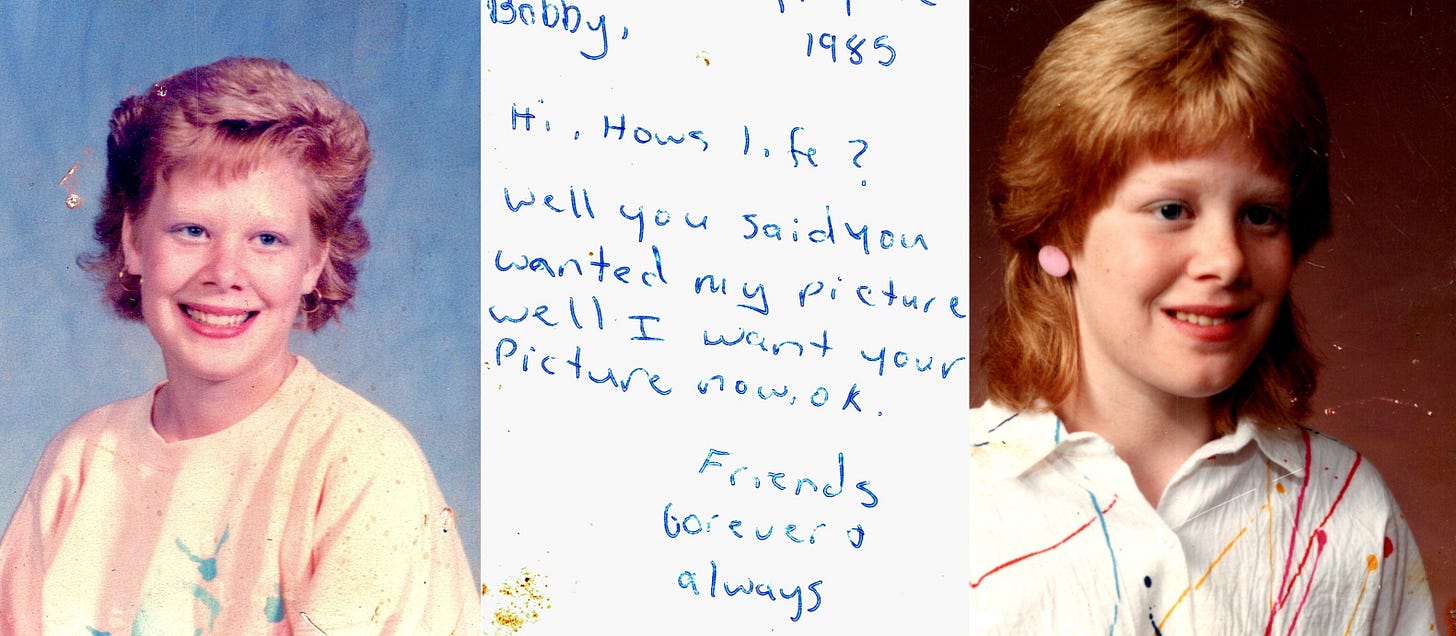 Bobby,
1985
Hi. Hows life?
Well you said you
wanted my picture
well I want your
Picture now, ok.
Friends
forever &
always